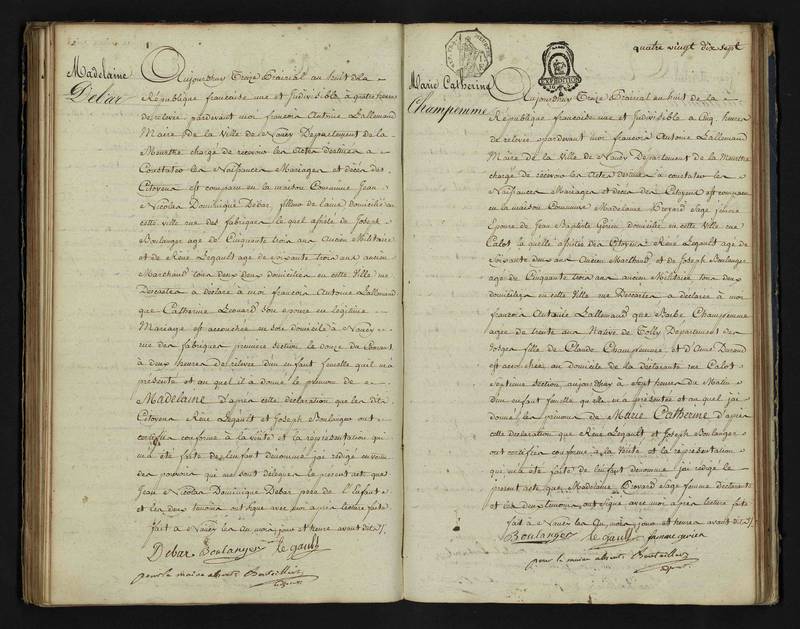 Madelaine
Debar
Aujourdhuy Treize Prairial au huit de la
République francaise une et Indivisible à quatre heures
de relevée pardevant moi francois Antoine Lallemand
Maire de la Ville de Nancy Departement de la
Meurthe chargé de recevoir les Actes destinés a
Constater les Naissances Mariages et décès des
Citoyens est comparu en la maison Commune Jean
Nicolas Dominique Debar, fileur de laine domicilié en
cette ville rue des fabriques le quel assisté de Joseph
Boulanger age de Cinquante trois ans Ancien Militaire
et de Réné Legault age de soixante trois ans ancien
Marchand tous deux domiciliés en cette Ville rue
Descartes à déclaré à moi francois Antoine Lallemand
que Catherine Leonard son epouse en légitime
Mariage est accouchée en son domicile à Nancy
rue des fabriques premiere section le douze du Courant
à deux heures de relevée d'un enfant femelle qu'il m'a
présenté et au quel il a donné le prenom de
Madelaine D'apres cette déclaration que les dits
Citoyens Réné Legault et Joseph Boulanger ont
certifiée conforme à la vérité et la représentation qui
m'a été faite de l'enfant dénommé jai rédigé en vertu
des pouvoirs qui me sont délégués le présent acte que
Jean Nicolas Dominique Debar pere de l'Enfant
et les deux temoins ont signé avec moi apres lecture faite
fait à Nancy les an, mois, jour et heure avant dits
Debar Boulanger le gault
pour le maire absent Bouteiller
adjoint
quatre vingt dix sept
EXPEDITION
Marie Catherine
Champenime
Aujourdhuy Treize Prairial au huit de la
République francaise une et indivisible à Cinq heures
de relevée pardevant moi francois Antoine Lallemand
Maire de la Ville de Nancy Departement de la Meurthe
chargé de recevoir les Actes destinés a constater les
Naissances Mariages et décès des Citoyens est comparu
en la maison Commune Madelaine Provard Sage femme
Epouse de Jean Baptiste domiciliée en cette Ville rue
Calot la quelle assistée des Citoyens Réné Legault age de
Soixante deux ans Ancien Marchand et de Joseph Boulanger
age de Cinquante trois ans ancien Militaire tous deux
domiciliés en cette Ville rue Descartes a déclarée à moi
francois Antoine Lallemand que Barbe Champenime
agée de trente ans Native de Departement des
Vosges fille de Claude Champenime et d'Anne Durand
est accouchée au domicile de la déclarante rue Calot
Septieme section aujourdhuy à Sept heures du Matin
d'un enfant femelle qu'elle m'a présenté et au quel jai
donné les prénoms de Marie Catherine d'apres
cette déclaration que Réné Legault et Joseph Boulanger
ont certifiée conforme a la Vérité et la représentation
qui m'a été faite de l'enfant dénommé jai rédigé le
présent acte que Madelaine Provard Sage femme déclarante
et les deux temoins ont signé avec moi apres lecture faite
fait à Nancy les an, mois, jour et heure avant dits
Boulanger le gault
pour le maire absent Bouteiller
adjoint